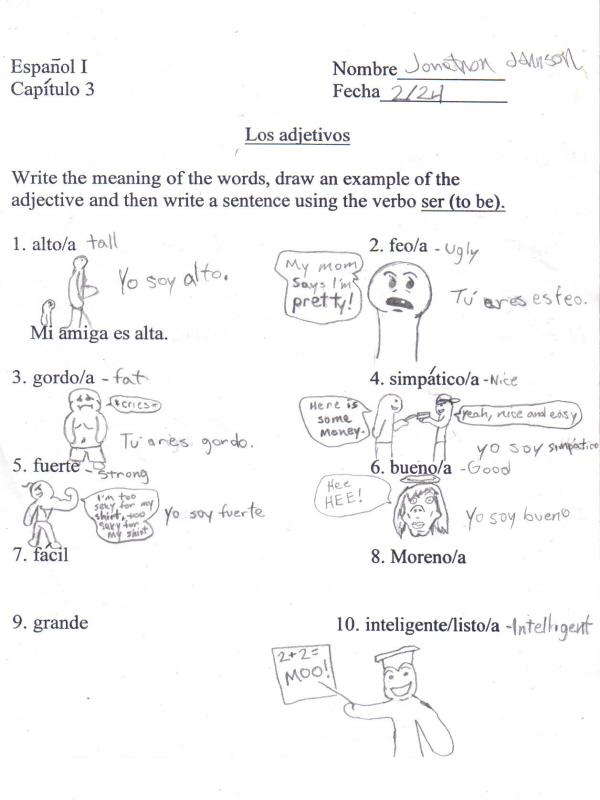 Español I
Nombre Jonathon Johnson
Capítulo 3
Fecha 2/24
Los adjetivos
Write the meaning of the words, draw an example of the
adjective and then write a sentence using the verbo ser (to be).
1. alto/a tall
Yo soy alto.
Mi amiga es alta.
2. feo/a - Ugly
My mom
says I'm
pretty!
Tú ares es feo.
3. gordo/a - fat
*cries*
Tu ares gordo.
4. simpático/a - Nice
Here is
some
money.
yeah, nice and easy
yo soy simpático
5. fuerte - strong
I'm too
sexy for my
shirt, too
sexy for
my shirt
Yo soy fuerte
6. bueno/a - Good
Hee
HEE!
Yo soy bueno
7. fácil
8. Moreno/a
9. grande
10. inteligente/listo/a - Intelligent
2+2=
MOO!